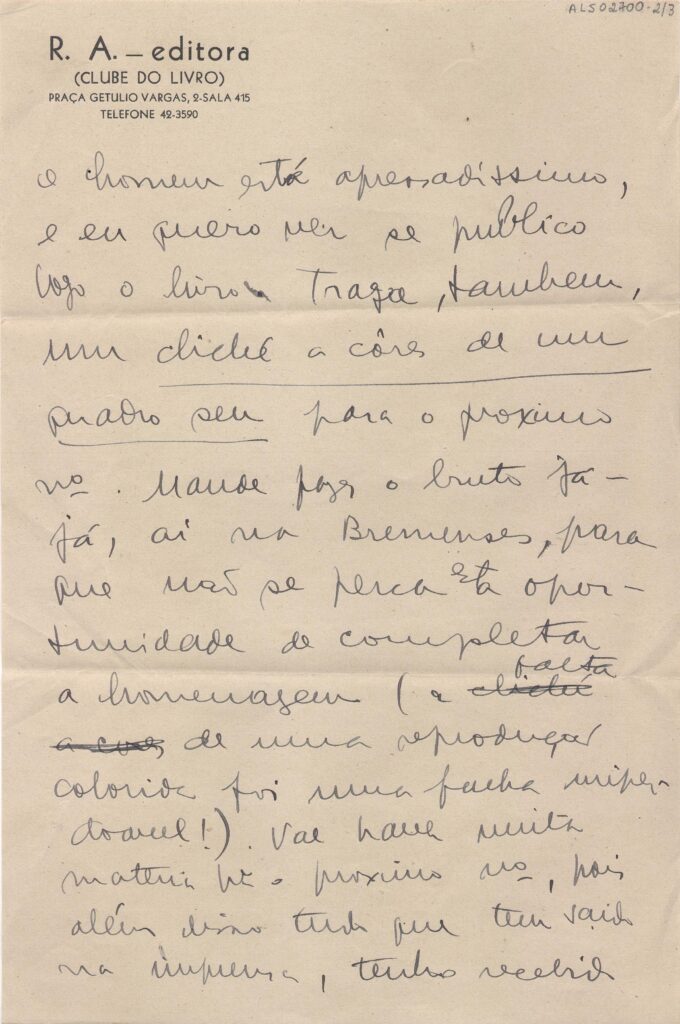 ALS02700-2/3
R. A. — editora
(CLUBE DO LIVRO)
PRAÇA GETULIO VARGAS, 2-SALA 415
TELEFONE 42-3590
o homem está apressadissimo,
e eu quero ver se publico
logo o livro. Traga, tambem,
um cliché a côres de um
quadro seu para o proximo
nº. Mande fazer o bruto já-
já, ai na Bremenses, para
que não se perca esta opor-
tunidade de completar
a homenagem (a falta
de uma reprodução
colorida foi uma falha imper-
doavel!). Vae haver muita
materia pª o proximo nº, pois
além disso tudo que tem saido
na imprensa, tenho recebido